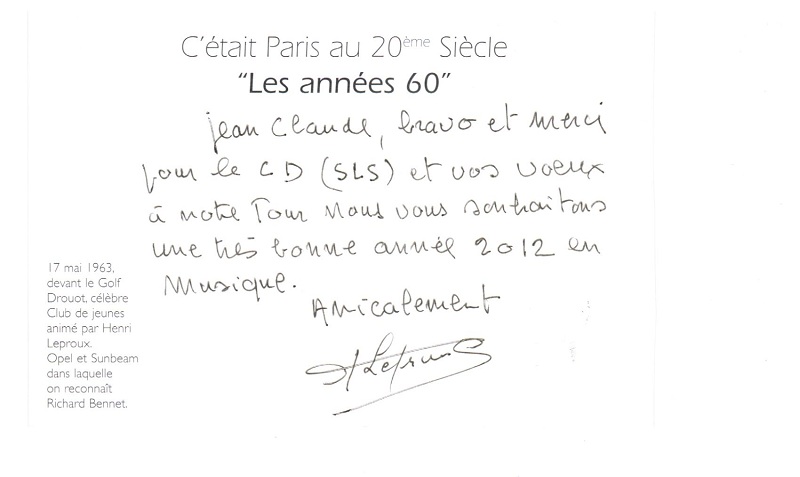 C'était Paris au 20ème Siècle
"Les années 60"
jean Claude, bravo et merci
pour le CD (SLS) et vos voeux
à notre Tour Nous vous souhaitons
une très bonne année 2012 en
Musique.
Amicalement
H Leproux
17 mai 1963,
devant le Golf
Drouot, célèbre
Club de jeunes
animé par Henri
Leproux.
Opel et Sunbeam
dans laquelle
on reconnaît
Richard Bennet.